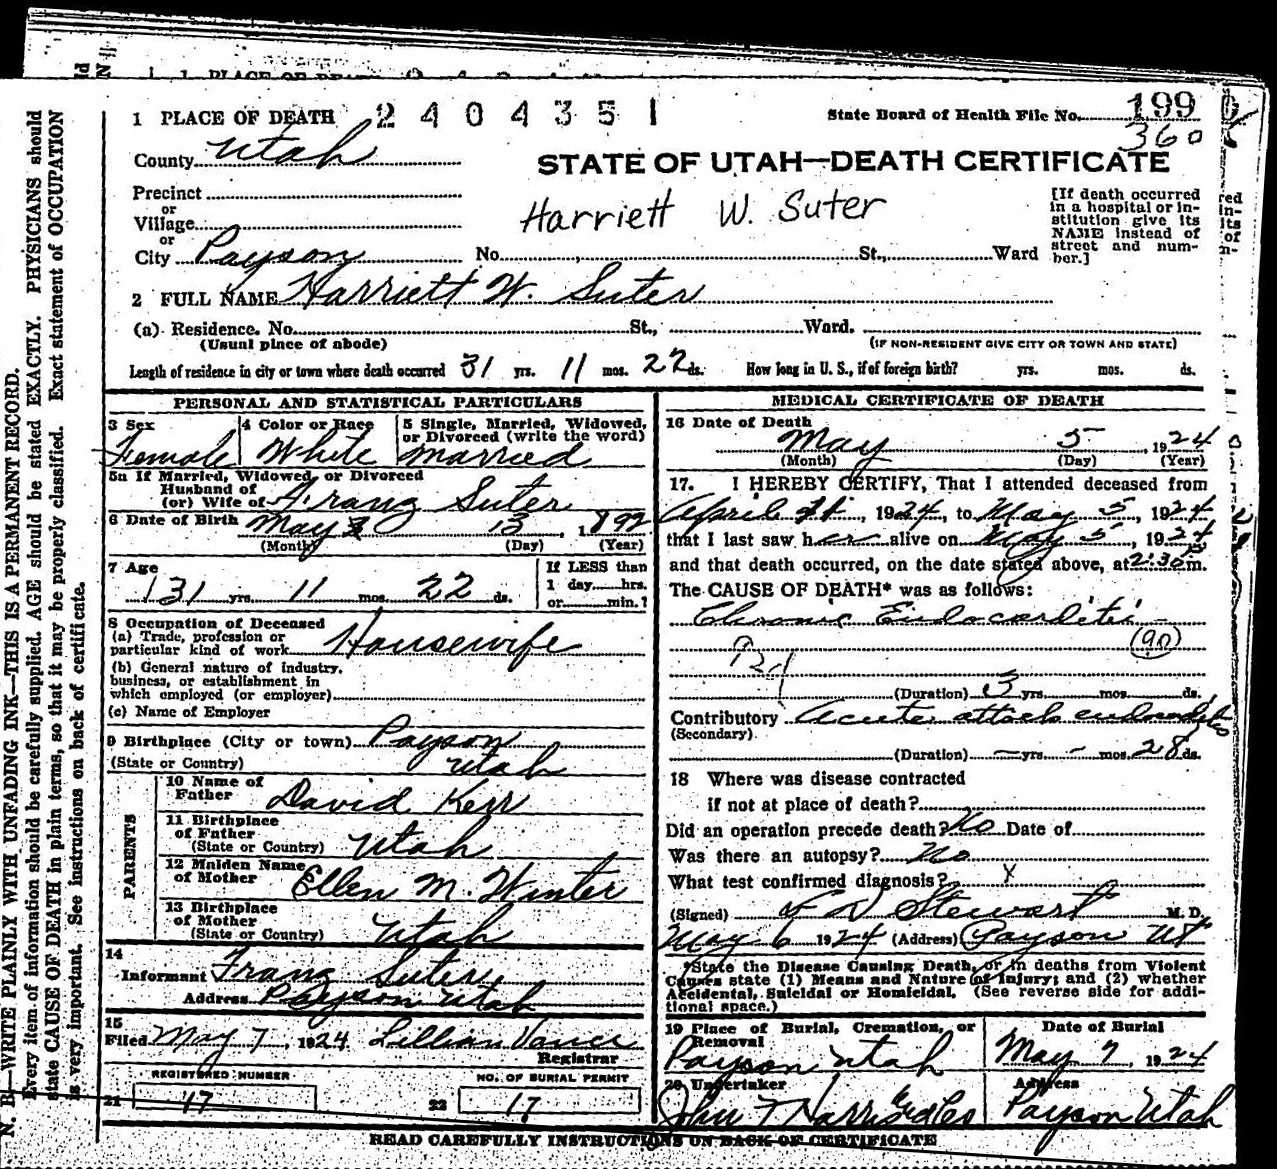 1 PLACE OF DEATH 2 4 0 4 3 5 1
State Board of Health File No. 199
360
County Utah
STATE OF UTAH—DEATH CERTIFICATE
Precinct
or
Village
or
City Payson No. St., Ward
Harriett W. Suter
[If death occurred in a hospital or in-
stitution give its
NAME instead of
street and num-
ber.]
2 FULL NAME Harriett W. Suter
(a) Residence. No. St., Ward.
(Usual place of abode) (IF NON-RESIDENT GIVE CITY OR TOWN AND STATE)
Length of residence in city or town where death occurred 31 yrs. 11 mos. 22 ds. How long in U. S., if of foreign birth? yrs. mos. ds.
PERSONAL AND STATISTICAL PARTICULARS
3 Sex Female
4 Color or Race White
5 Single, Married, Widowed,
or Divorced (write the word)
Married
5a If Married, Widowed, or Divorced
Husband of
(or) Wife of Franz Suter
6 Date of Birth May 13, 1892
(Month) (Day) (Year)
7 Age 31 yrs. 11 mos. 22 ds.
If LESS than
1 day hrs.
or min.?
8 Occupation of Deceased
(a) Trade, profession or
particular kind of work Housewife
(b) General nature of industry,
business, or establishment in
which employed (or employer)
(c) Name of Employer
9 Birthplace (City or town) Payson
(State or Country) Utah
PARENTS
10 Name of
Father David Kerr
11 Birthplace
of Father
(State or Country) Utah
12 Maiden Name
of Mother Ellen M. Winter
13 Birthplace
of Mother
(State or Country) Utah
14
Informant Franz Suter
Address Payson Utah
15
Filed May 7, 1924 Lillian Vance
Registrar
REGISTERED NUMBER NO. OF BURIAL PERMIT
21 17 22 17
MEDICAL CERTIFICATE OF DEATH
16 Date of Death
May 5, 1924
(Month) (Day) (Year)
17. I HEREBY CERTIFY, That I attended deceased from
April, 1924, to May 5, 1924
that I last saw her alive on May 5, 1924
and that death occurred, on the date stated above, at 2:30 P m.
The CAUSE OF DEATH* was as follows:
Chronic Endocarditis
(90)
(Duration) 3 yrs. mos. ds.
Contributory Acute attack endocarditis
(Secondary)
(Duration) — yrs. - mos. 28 ds.
18 Where was disease contracted
if not at place of death?
Did an operation precede death? No Date of
Was there an autopsy? No
What test confirmed diagnosis? x
(Signed) Stewart M. D.
May 6 1924 (Address) Payson Ut
*State the Disease Causing Death, or in deaths from Violent
Causes state (1) Means and Nature of Injury; and (2) whether
Accidental, Suicidal or Homicidal. (See reverse side for addi-
tional space.)
19 Place of Burial, Cremation, or
Removal
Payson Utah
Date of Burial
May 7, 1924
20 Undertaker
John T Harris
Address
Payson Utah
READ CAREFULLY INSTRUCTIONS ON BACK OF CERTIFICATE
N. B.—WRITE PLAINLY WITH UNFADING INK—THIS IS A PERMANENT RECORD.
Every item of information should be carefully supplied. AGE should be stated EXACTLY. PHYSICIANS should
state CAUSE OF DEATH in plain terms, so that it may be properly classified. Exact statement of OCCUPATION
is very important. See instructions on back of certificate.